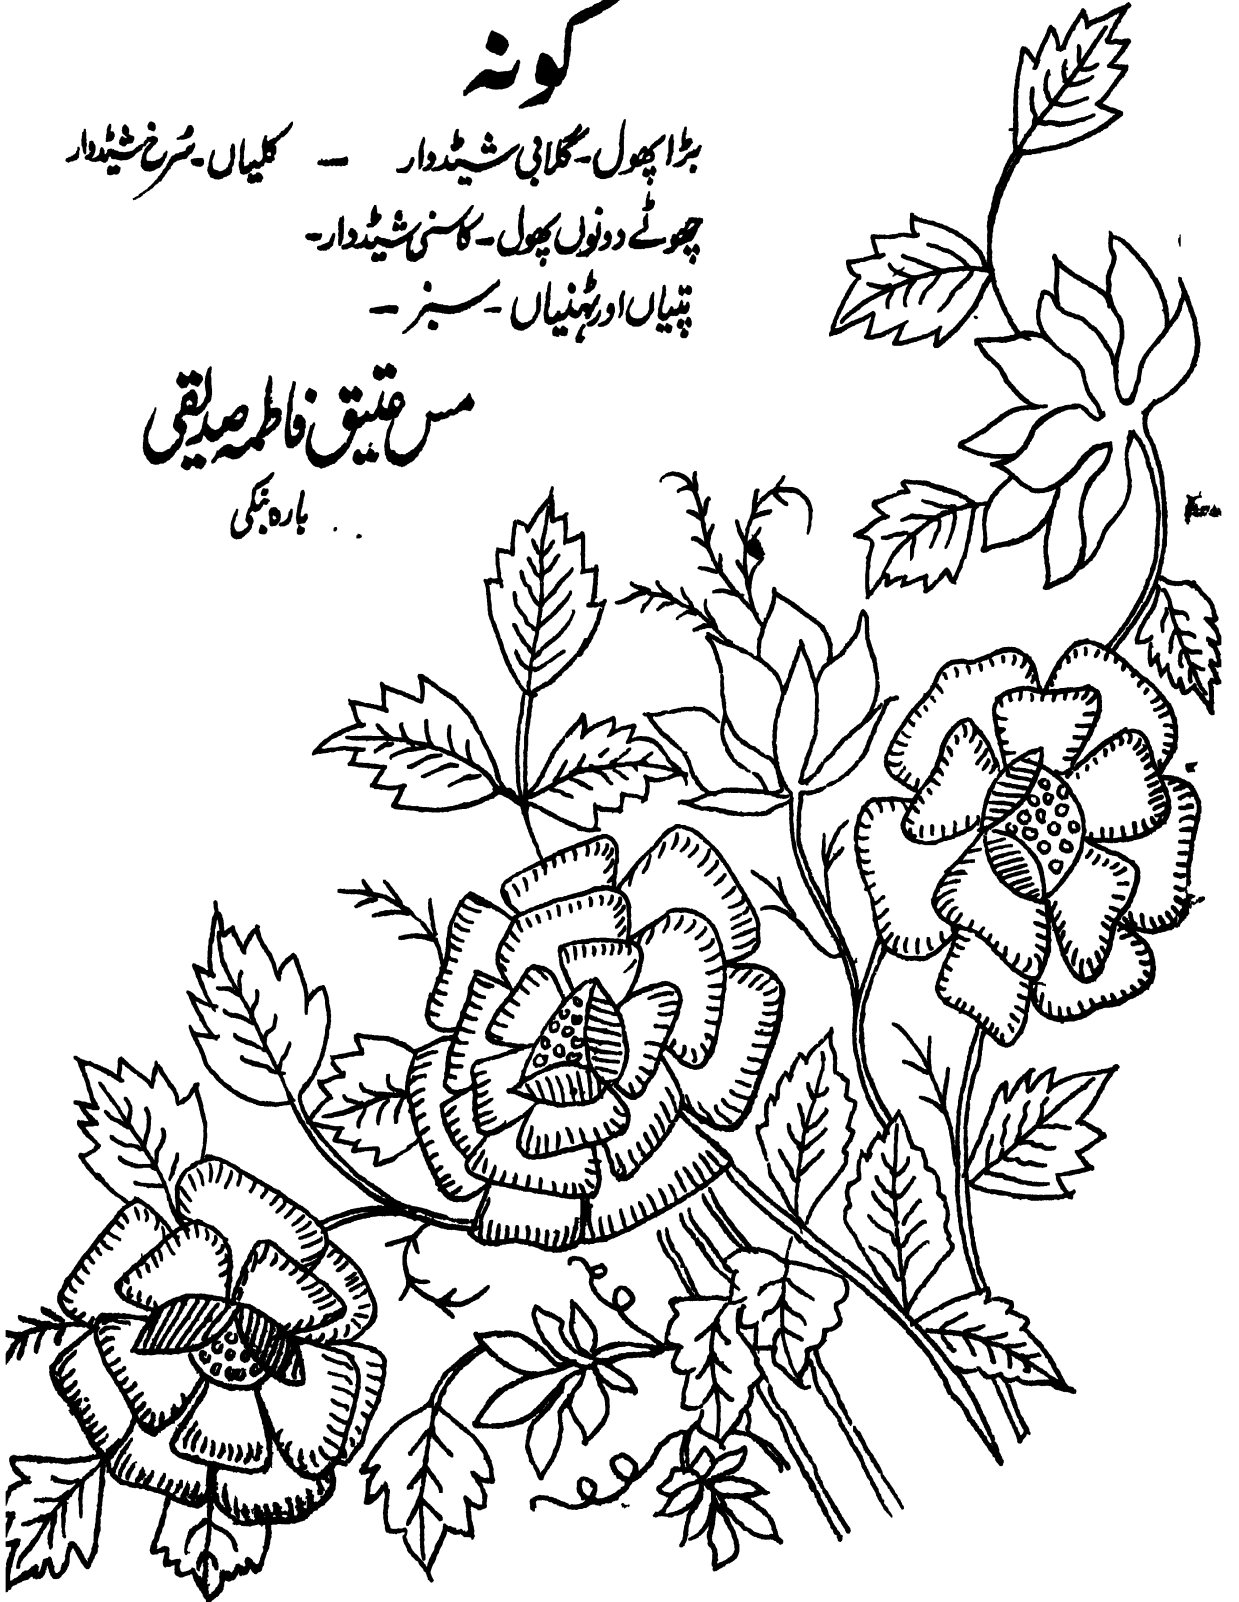 کونہ
بڑا پھول۔ گلابی شیڈدار — کلیاں۔ سُرخ شیڈدار
چھوٹے دونوں پھول۔ کاسنی شیڈدار۔
پتیاں اور ٹہنیاں۔ سبز۔
مس عتیق فاطمہ صدیقی
بارہ بنکی